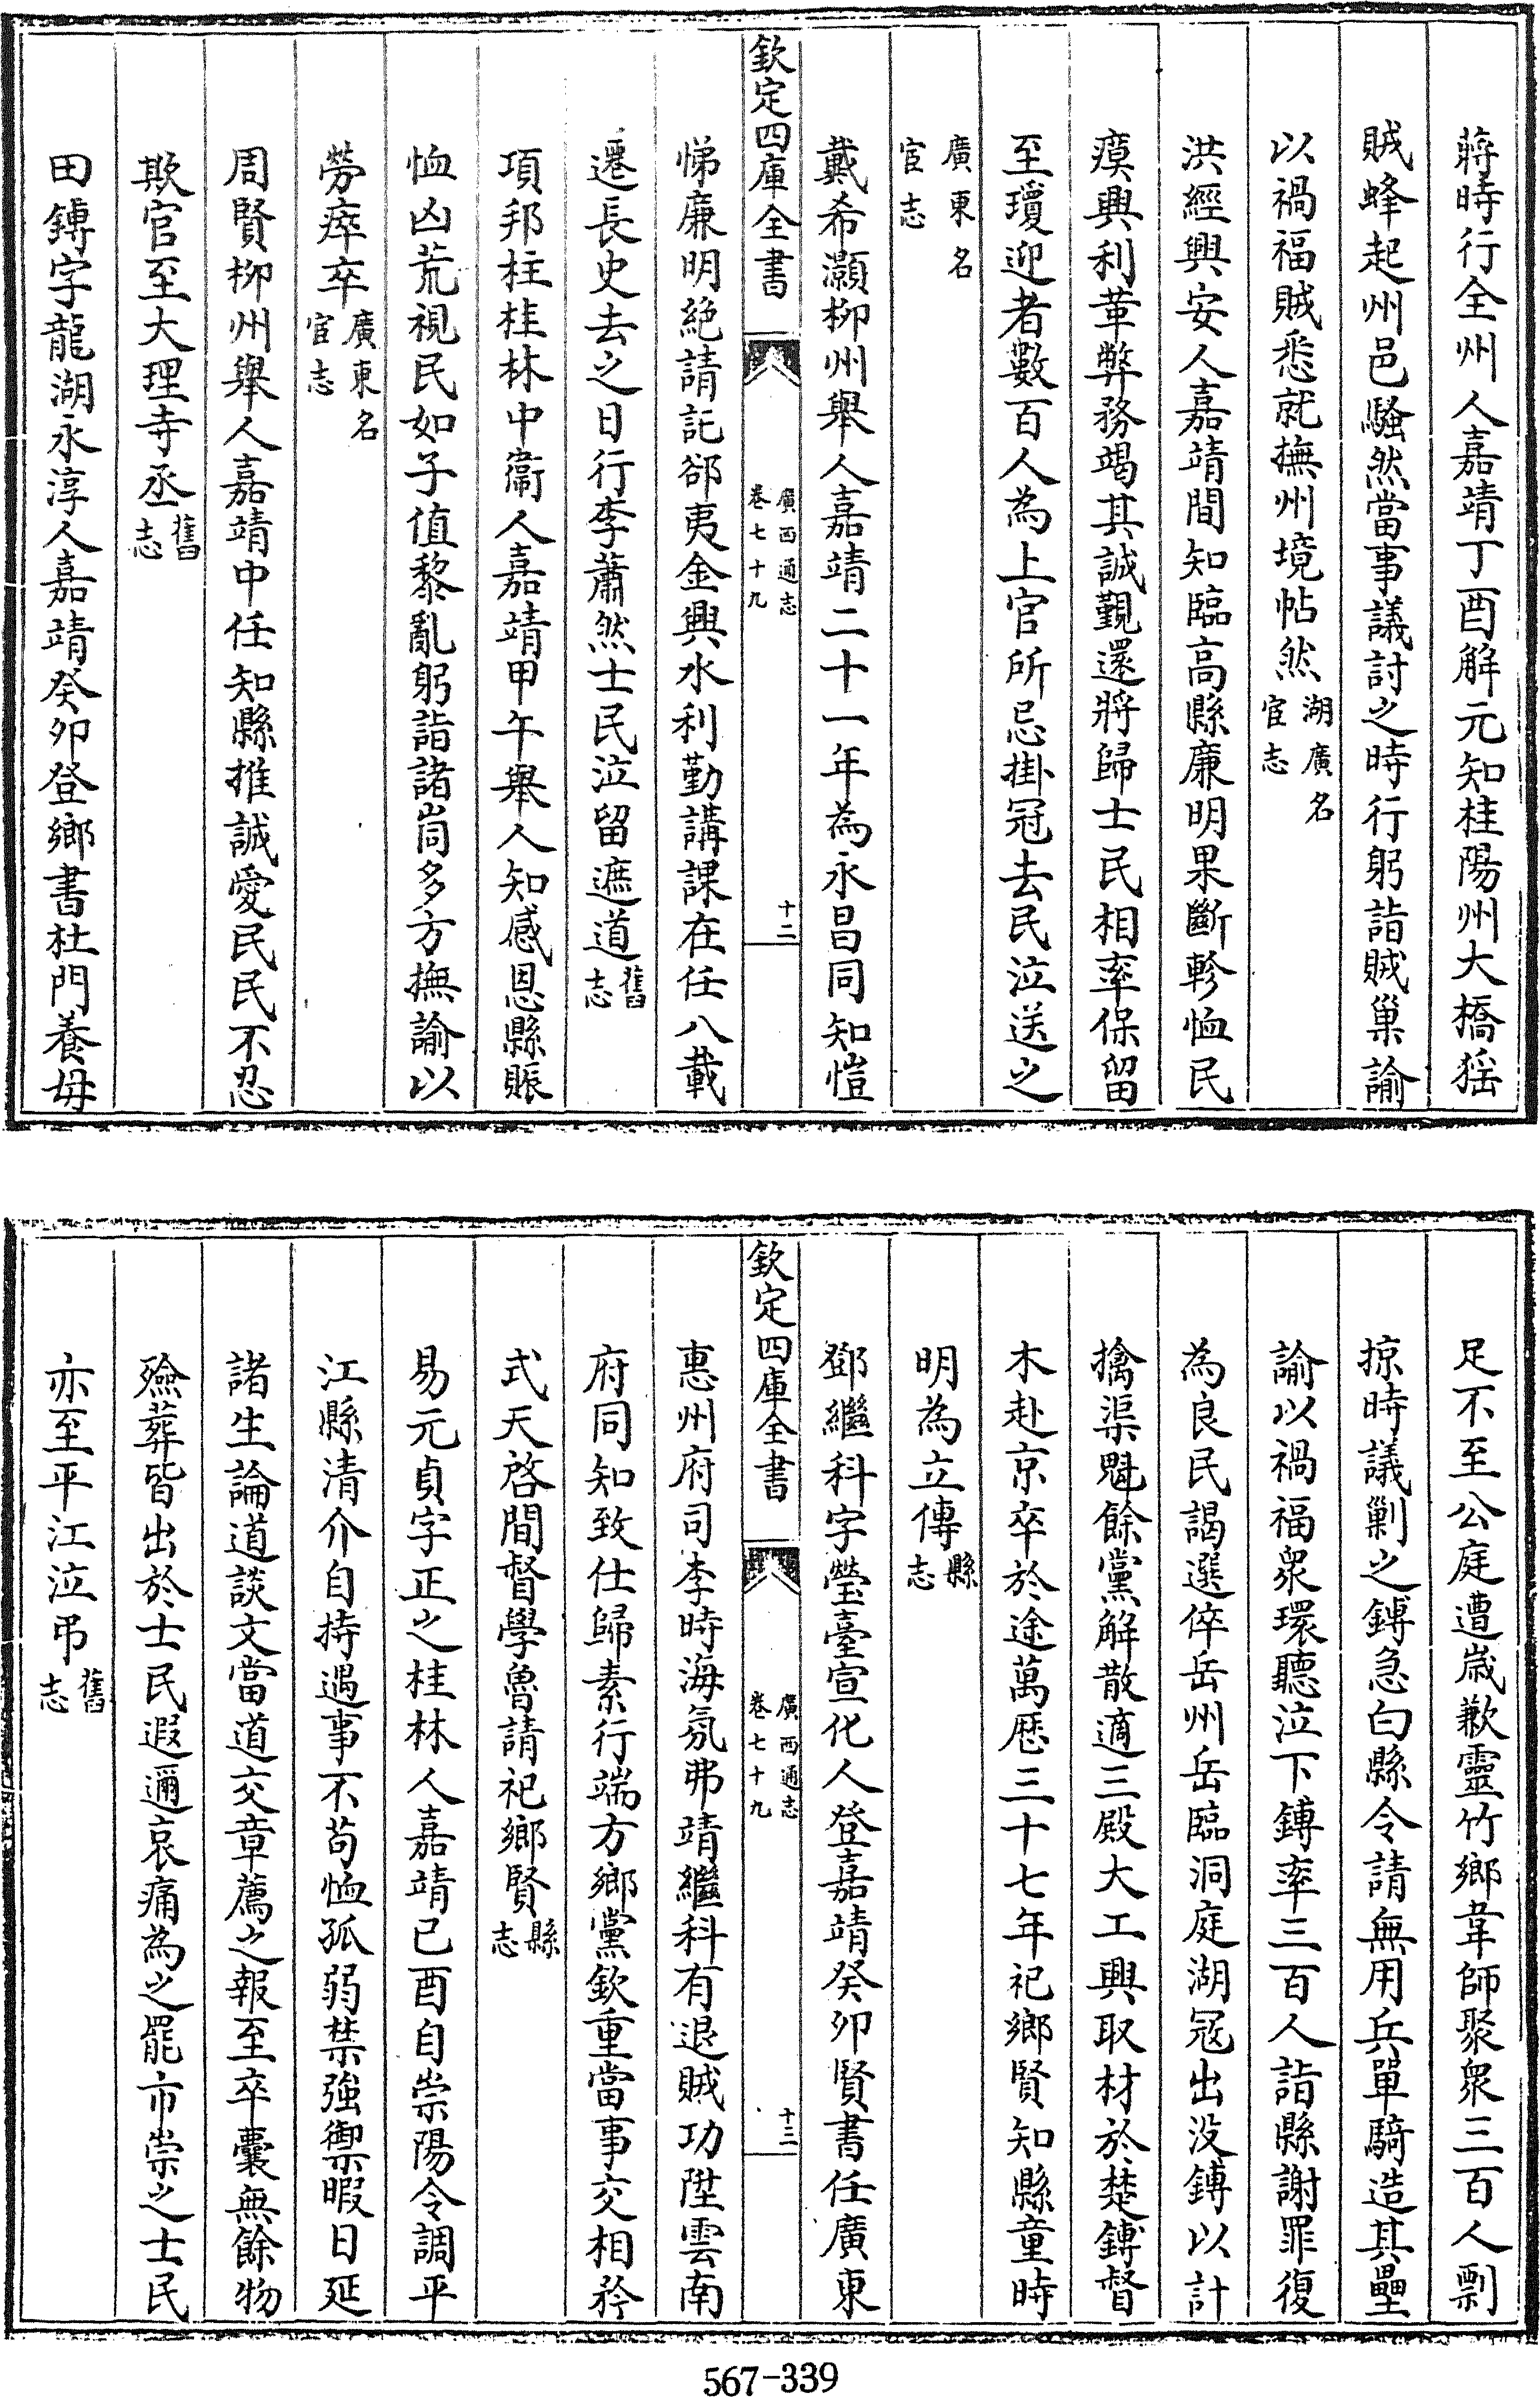 蔣時行全州人嘉靖丁酉解元知桂陽州大橋猺
賊蜂起州邑騷然當事議討之時行躬詣賊巢諭
以禍福賊悉就撫州境帖然湖廣名宦志
洪經興安人嘉靖間知臨高縣廉明果斷軫恤民
瘼興利革弊務竭其誠覲還將歸士民相率保留
至瓊迎者數百人為上官所忌掛冠去民泣送之
廣東名宦志
戴希灝柳州舉人嘉靖二十一年為永昌同知愷
欽定四庫全書
廣西通志
卷七十九
十二
悌廉明絶請託郤夷金興水利勤講課在任八載
遷長史去之日行李蕭然士民泣留遮道舊志
項邦柱桂林中衛人嘉靖甲午舉人知感恩縣賑
恤凶荒視民如子值黎亂躬詣諸峝多方撫諭以
勞瘁卒廣東名宦志
周賢柳州舉人嘉靖中任知縣推誠愛民民不忍
欺官至大理寺丞舊志
田鎛字龍湖永淳人嘉靖癸卯登鄉書杜門養母
足不至公庭遭歲歉靈竹鄉韋師聚衆三百人剽
掠時議剿之鎛急白縣令請無用兵單騎造其壘
諭以禍福衆環聽泣下鎛率三百人詣縣謝罪復
為良民謁選倅岳州岳臨洞庭湖冦出没鎛以計
擒渠魁餘黨解散適三殿大工興取材於楚鎛督
木赴京卒於途萬厯三十七年祀鄉賢知縣童時
明為立傳縣志
鄧繼科字瑩臺宣化人登嘉靖癸卯賢書任廣東
欽定四庫全書
廣西通志
卷七十九
十三
惠州府司李時海氛弗靖繼科有退賊功陞雲南
府同知致仕歸素行端方鄉黨欽重當事交相矜
式天啓間督學魯請祀鄉賢縣志
易元貞字正之桂林人嘉靖已酉自崇陽令調平
江縣清介自持遇事不茍恤孤弱禁強禦暇日延
諸生論道談文當道交章薦之報至卒囊無餘物
殮葬皆出於士民遐邇哀痛為之罷市崇之士民
亦至平江泣弔舊志
567-339